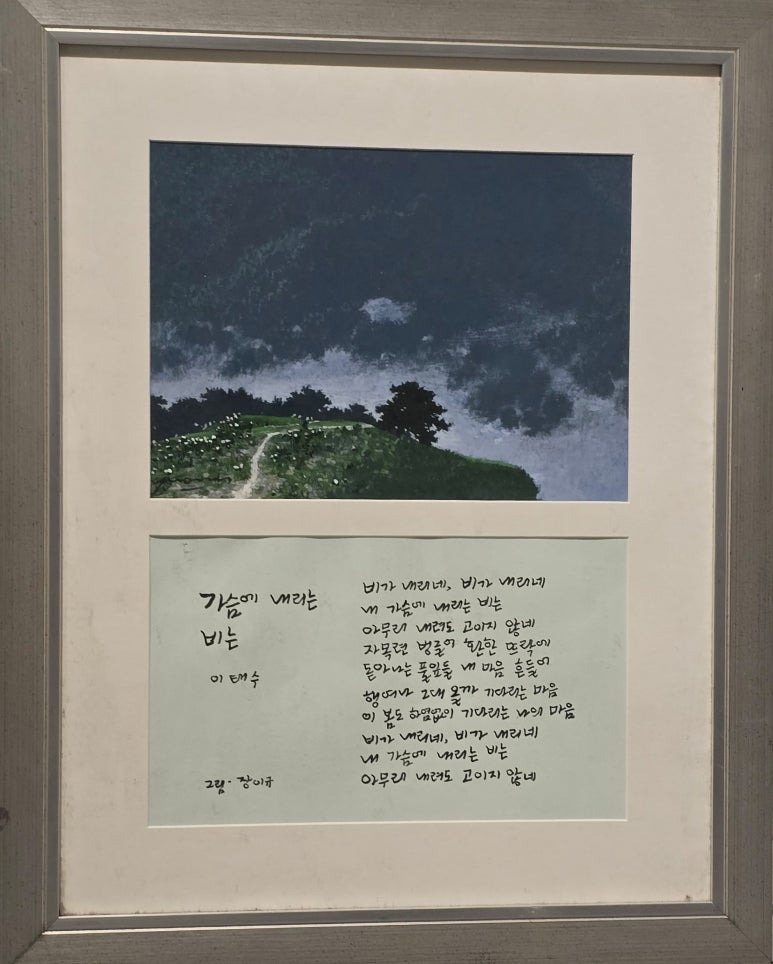 가슴에 내리는
비는
이태수
그림· 장이규
비가 내리네, 비가 내리네
내 가슴에 내리는 비는
아무리 내려도 고이지 않네
자목련 벙글어 환한 뜨락에
돋아나는 풀잎들 내 마음 흔들어
행여나 그대 올까 기다리는 마음
이 봄도 하염없이 기다리는 나의 마음
비가 내리네, 비가 내리네
내 가슴에 내리는 비는
아무리 내려도 고이지 않네